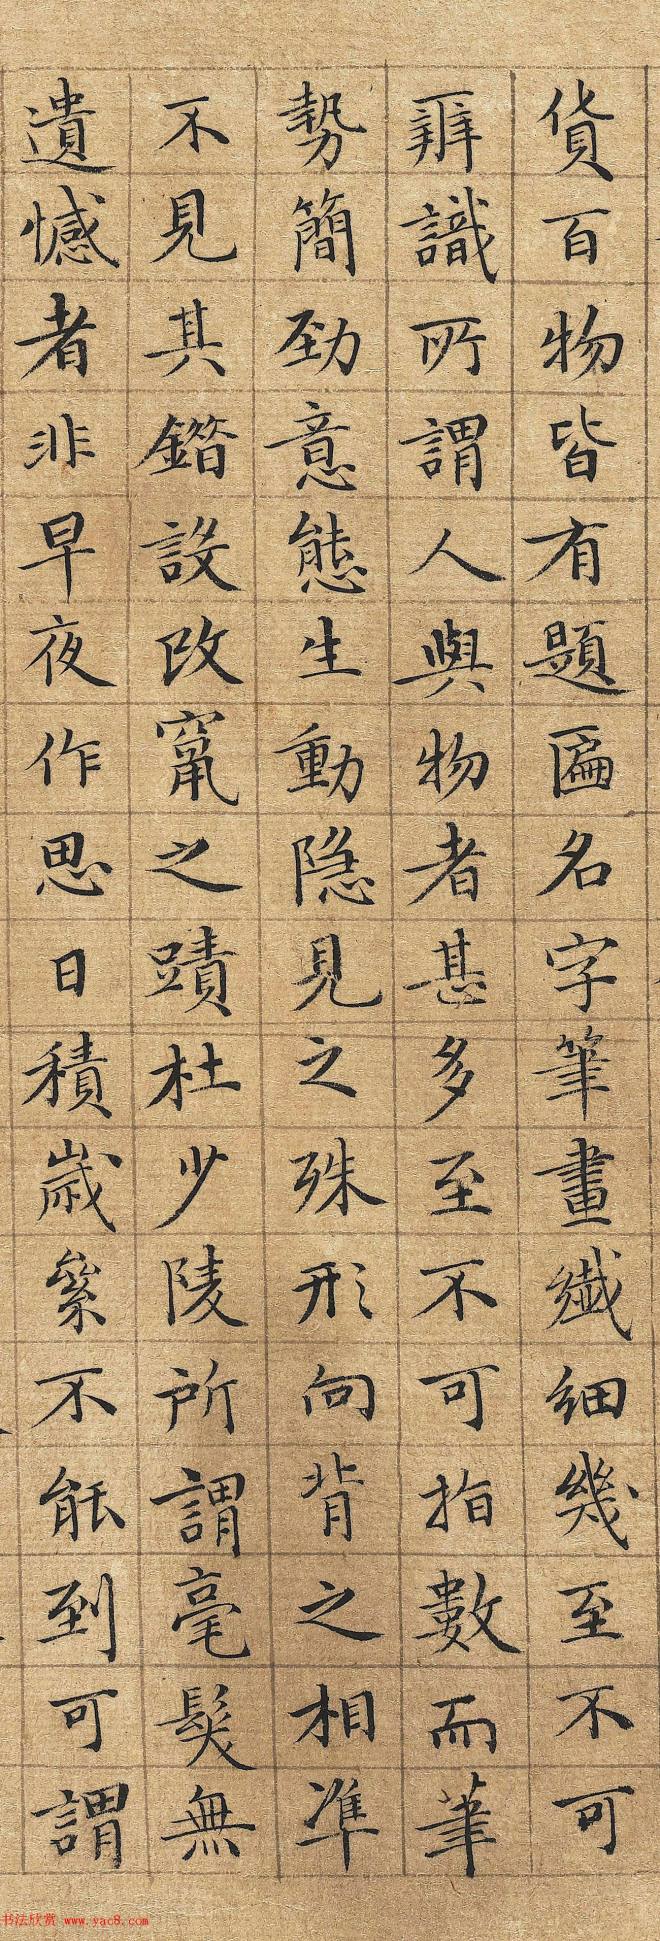 貨百物皆有題匾名字筆畫纖細幾至不可
辨識所謂人與物者甚多至不可指數而筆
勢簡勁意態生動隐見之殊形向背之相準
不見其鐕設改竄之蹟杜少陵所謂毫髮無
遺憾者非早夜作思日積歲絫不能到可謂
书法欣赏 www.yac8.com